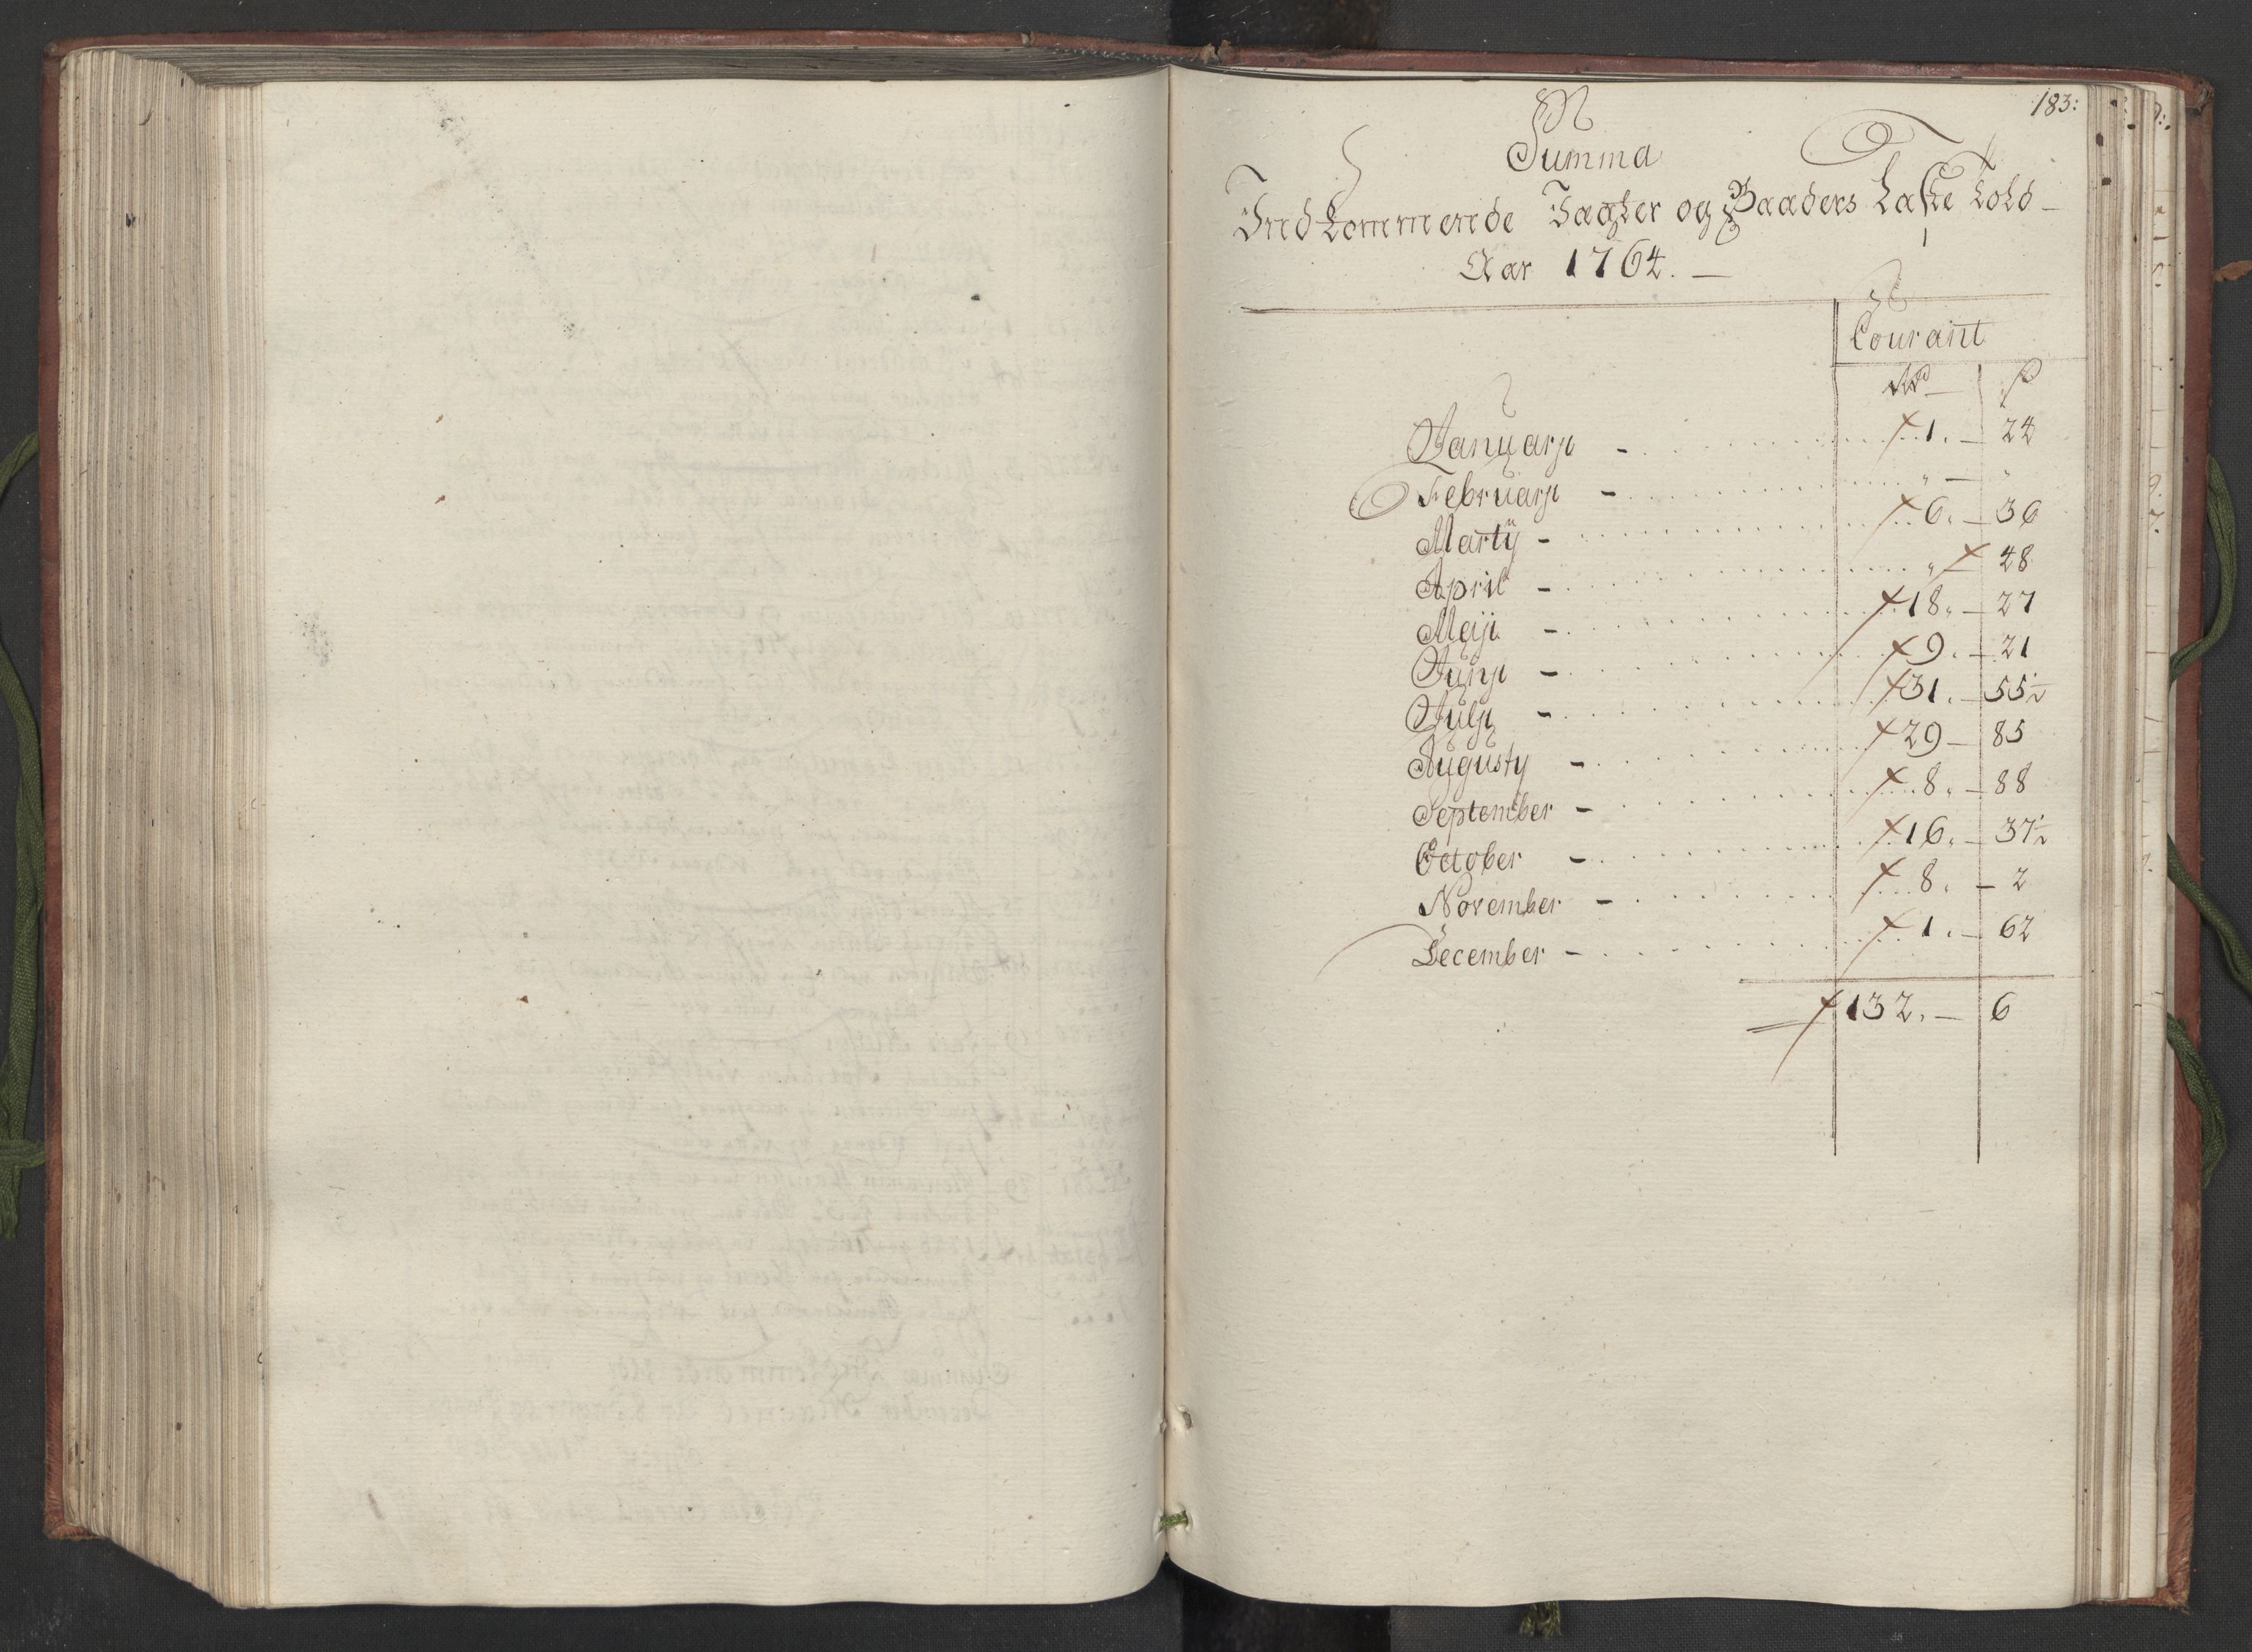 183:
Summa
Indkommende Jagter og Baaders Laste Told —
Aar 1764. —
Courant
Rd — ß
Januarji - 1. — 24
Februarji - " — "
Martij - 6. — 36
April - " — 48
Meiji - 18. — 27
Junji - 9. — 21
Julji - 31. — 55½
Augustij - 29 — 85
September - 8. — 88
October - 16. — 37½
November - 8. — 2
December - 1. — 62
132. — 6